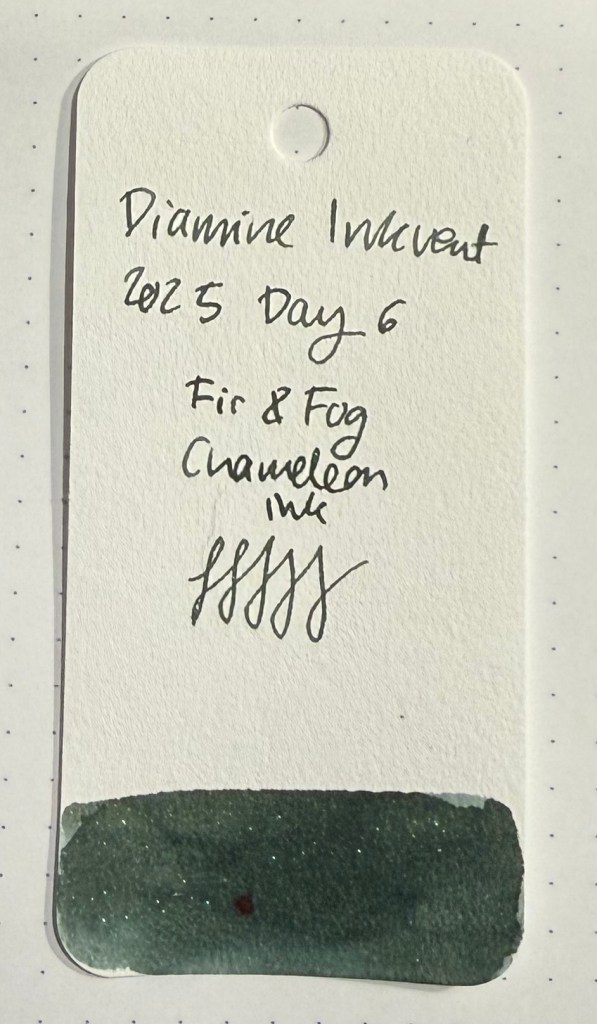 Diamine Inkvent
2025 Day 6
Fir & Fog
Chameleon
ink